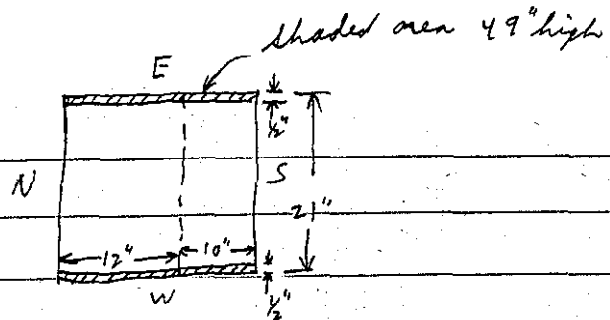 shaded area 49" high
E
1/2"
N
S
21"
12"
10"
W
1/2"